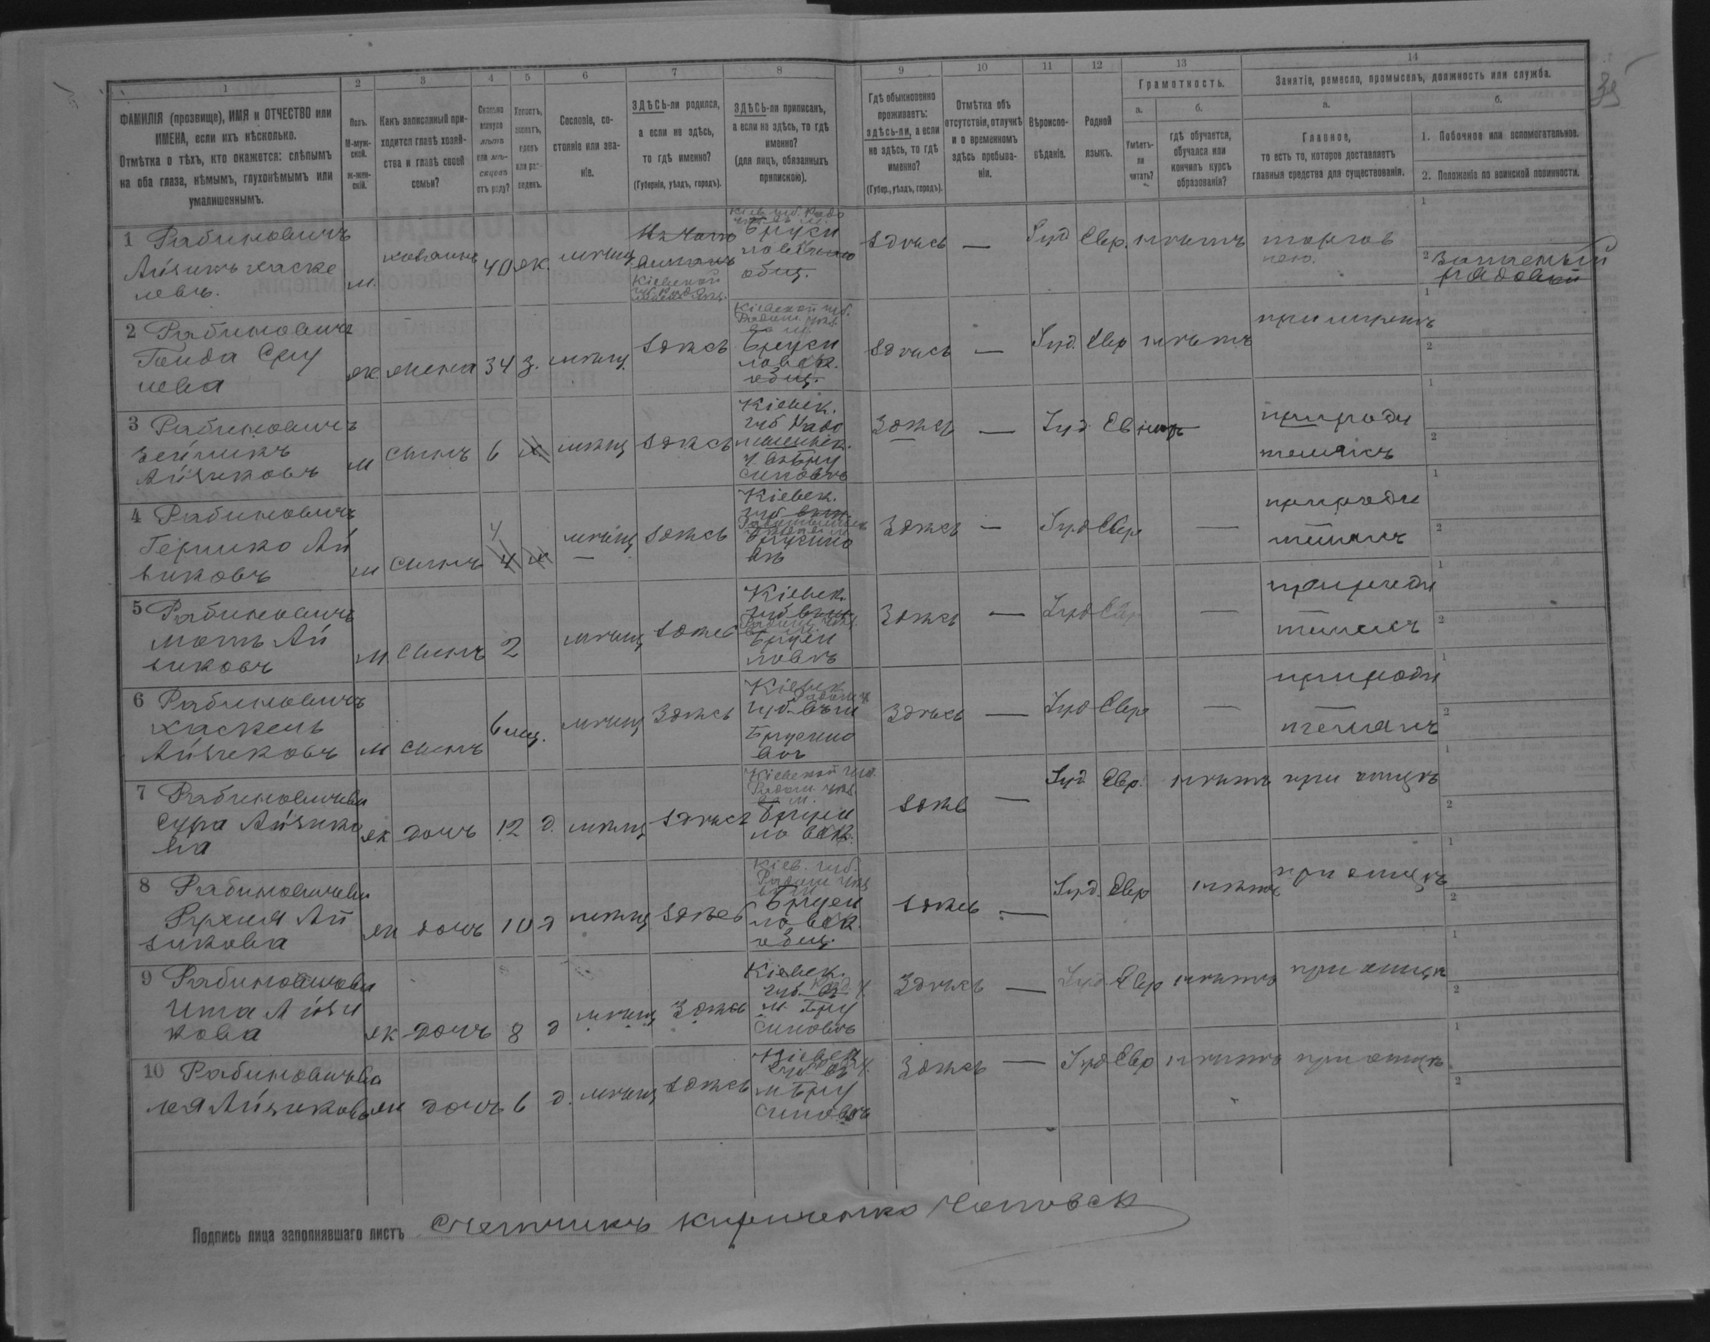 1 2 3 4 5 6 7 8 9 10 11 12 13 14
ФАМИЛІЯ (прозвище), ИМЯ и ОТЧЕСТВО или
ИМЕНА, если ихъ нѣсколько.
Отмѣтка о тѣхъ, кто окажется: слѣпымъ
на оба глаза, нѣмымъ, глухонѣмымъ или
умалишеннымъ.
Полъ.
М-муж-
ской.
ж-жен-
скій.
Какъ записанный при-
ходится главѣ хозяй-
ства и главѣ своей
семьи?
Сколько
минуло
лѣтъ
или мѣ-
сяцевъ
отъ роду?
Холостъ,
женатъ,
вдовъ
или раз-
веденъ.
Сословіе, со-
стояніе или зва-
ніе.
ЗДѢСЬ-ли родился,
а если не здѣсь,
то гдѣ именно?
(Губернія, уѣздъ, городъ).
ЗДѢСЬ-ли приписанъ,
а если не здѣсь, то гдѣ
именно?
(для лицъ, обязанныхъ
припискою).
Гдѣ обыкновенно
проживаетъ:
здѣсь-ли, а если
не здѣсь, то гдѣ
именно?
(Губер., уѣздъ, городъ).
Отмѣтка объ
отсутствіи, отлучкѣ
и о временномъ
здѣсь пребыва-
ніи.
Вѣроиспо-
вѣданіе.
Родной
языкъ.
Грамотность.
а.
Умѣетъ-
ли
читать?
б.
гдѣ обучается,
обучался или
кончилъ курсъ
образованія?
Занятіе, ремесло, промыселъ, должность или служба.
а.
Главное,
то есть то, которое доставляетъ
главныя средства для существованія.
б.
1. Побочное или вспомогательное.
2. Положеніе по воинской повинности.
1 Рабиновичъ
Айзикъ Хаске
левъ.
м. хозяинъ 40 ж. мѣщ
Кіевской
Бруси
ловскаго
общ.
Здѣсь — Іуд Евр. нѣтъ торгов
лею.
запасный
рядовой
2 Рабиновичъ
Гойда Сру
лева
ж жена 34 З. мѣщ. Здѣсь
Кіевской губ.
Бруси
ловск.
общ.
Здѣсь — Іуд. Евр нѣтъ при мужѣ
3 Рабиновичъ
Зейликъ
Айзиковъ
м сынъ 6 х мѣщ Здѣсь
Кіевск.
губ Радо
мышльск.
у въ Бру
силовѣ
Здѣсь — Іуд Ев нѣтъ
при роди
теляхъ
4 Рабиновичъ
Гершко Ай
зиковъ
м сынъ 4 х мѣщ Здѣсь
Кіевск.
губ
Брусило
вѣ
Здѣсь — Іуд Евр —
при роди
теляхъ
5 Рабиновичъ
Моть Ай
зиковъ
м сынъ 2 мѣщ Здѣсь
Кіевск.
губ въ м
Бруси
ловѣ
Здѣсь — Іуд Евр —
при роди
теляхъ
6 Рабиновичъ
Хаскель
Айзиковъ
м сынъ 6 мѣс. мѣщ Здѣсь
Кіевск
губ. въ м
Брусило
вѣ
Здѣсь — Іуд Евр —
при роди
теляхъ
7 Рабиновичева
Сура Айзико
ва
ж дочь 12 д. мѣщ Здѣсь
Кіевской губ.
Радом уѣз.
въ м.
Бруси
ловск.
Здѣсь — Іуд Евр. нѣтъ при отцѣ
8 Рабиновичева
Рухля Ай
зикова
ж дочь 10 д мѣщ Здѣсь
Кіев. губ.
Радом уѣз
Бруси
ловск.
общ.
Здѣсь — Іуд. Евр нѣтъ при отцѣ
9 Рабиновичева
Ита Айзи
кова
ж дочь 8 д мѣщ Здѣсь
Кіевск.
губ. въ
м. Бру
силовѣ
Здѣсь — Іуд Евр нѣтъ при отцѣ
10 Рабиновичева
Лея Айзикова
ж дочь 6 д. мѣщ Здѣсь
Кіевск
губ въ
м Бру
силовѣ
Здѣсь — Іуд Евр нѣтъ при отцѣ
Подпись лица заполнявшаго листъ Счетчикъ Кириченко